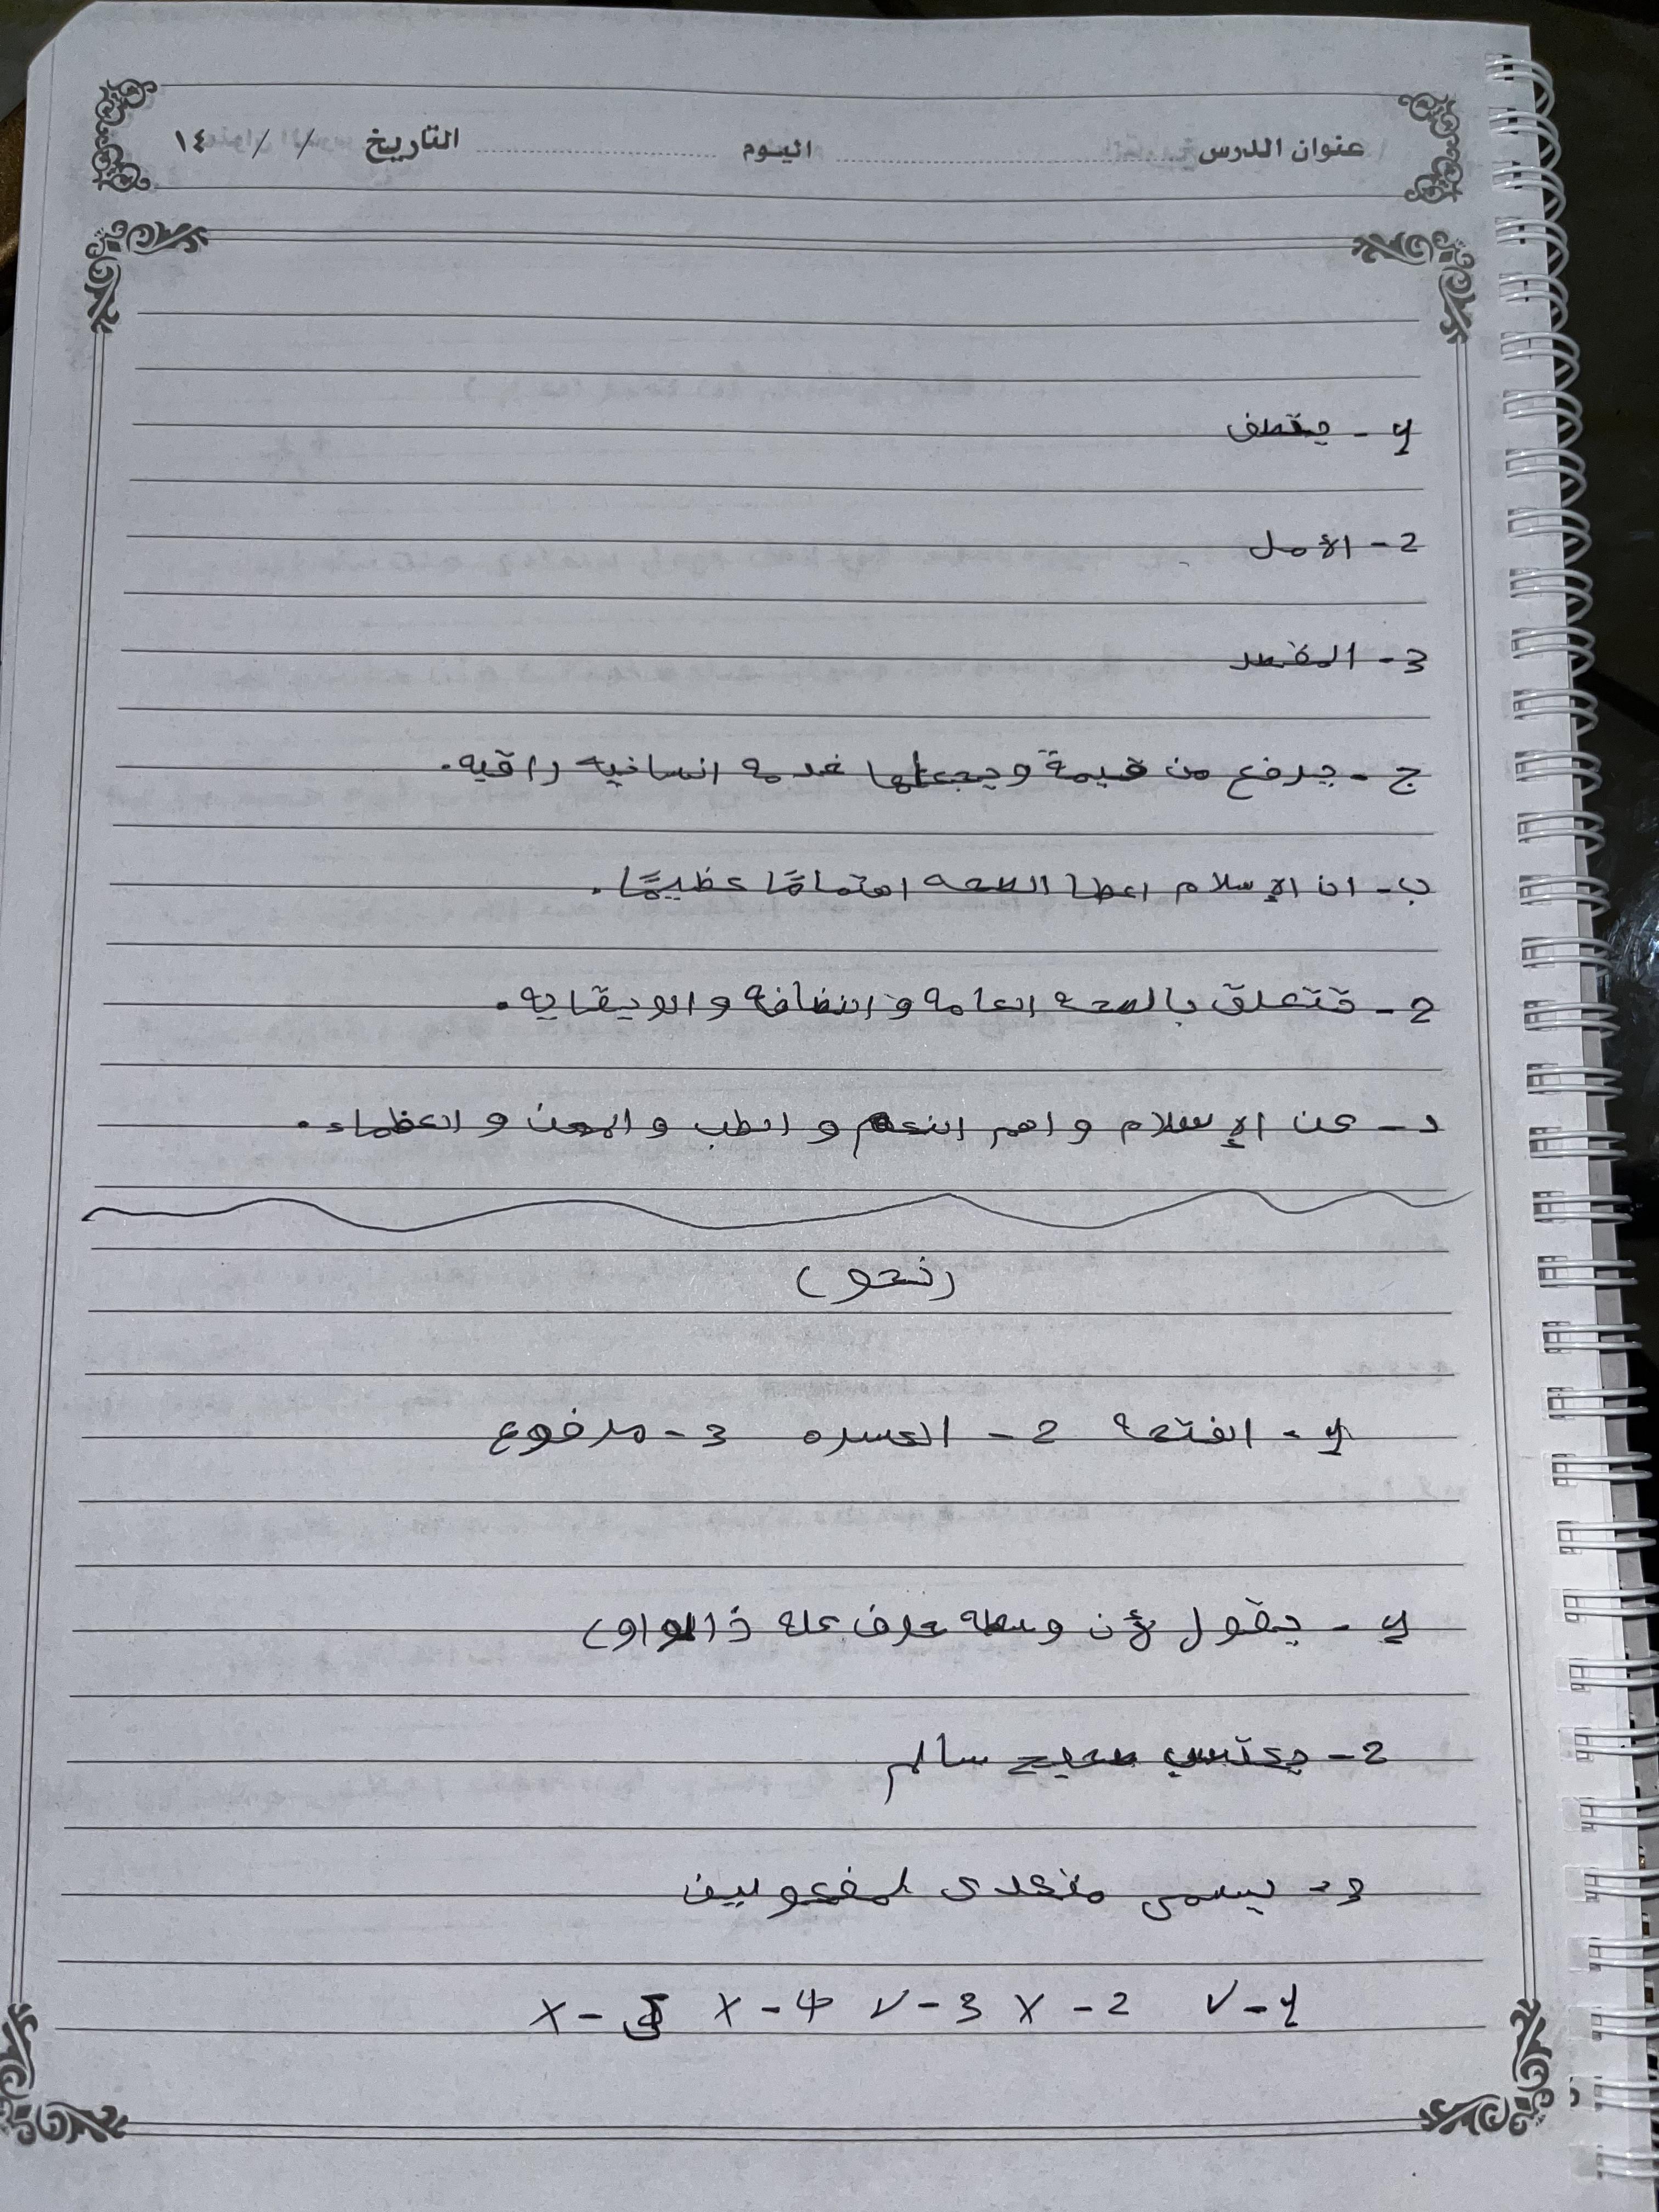 عنوان الدرس ........ اليوم ........ التاريخ / / ١٤
1- يقطف
2- الأمل
3- المفسد
ج - يرفع من قيمة ويجعلها خدمه انسانيه راقيه.
ب- ان الإسلام اعطا الصحه اهتمامًا عظيمًا.
2- تتعلق بالصحه العامه و النضافه و الويقايه.
د- عن الإسلام و اهم النعم و الطب و المهن و العظماء.
(نحو)
1- الفتحه 2- الكسره 3- مرفوع
1- يقول لأن وسطه حرف عله (الواو)
2- يكتسب صحيح سالم
3- يسمى متعدى لمفعولين
1- ✓ 2- X 3- ✓ 4- X 5- X